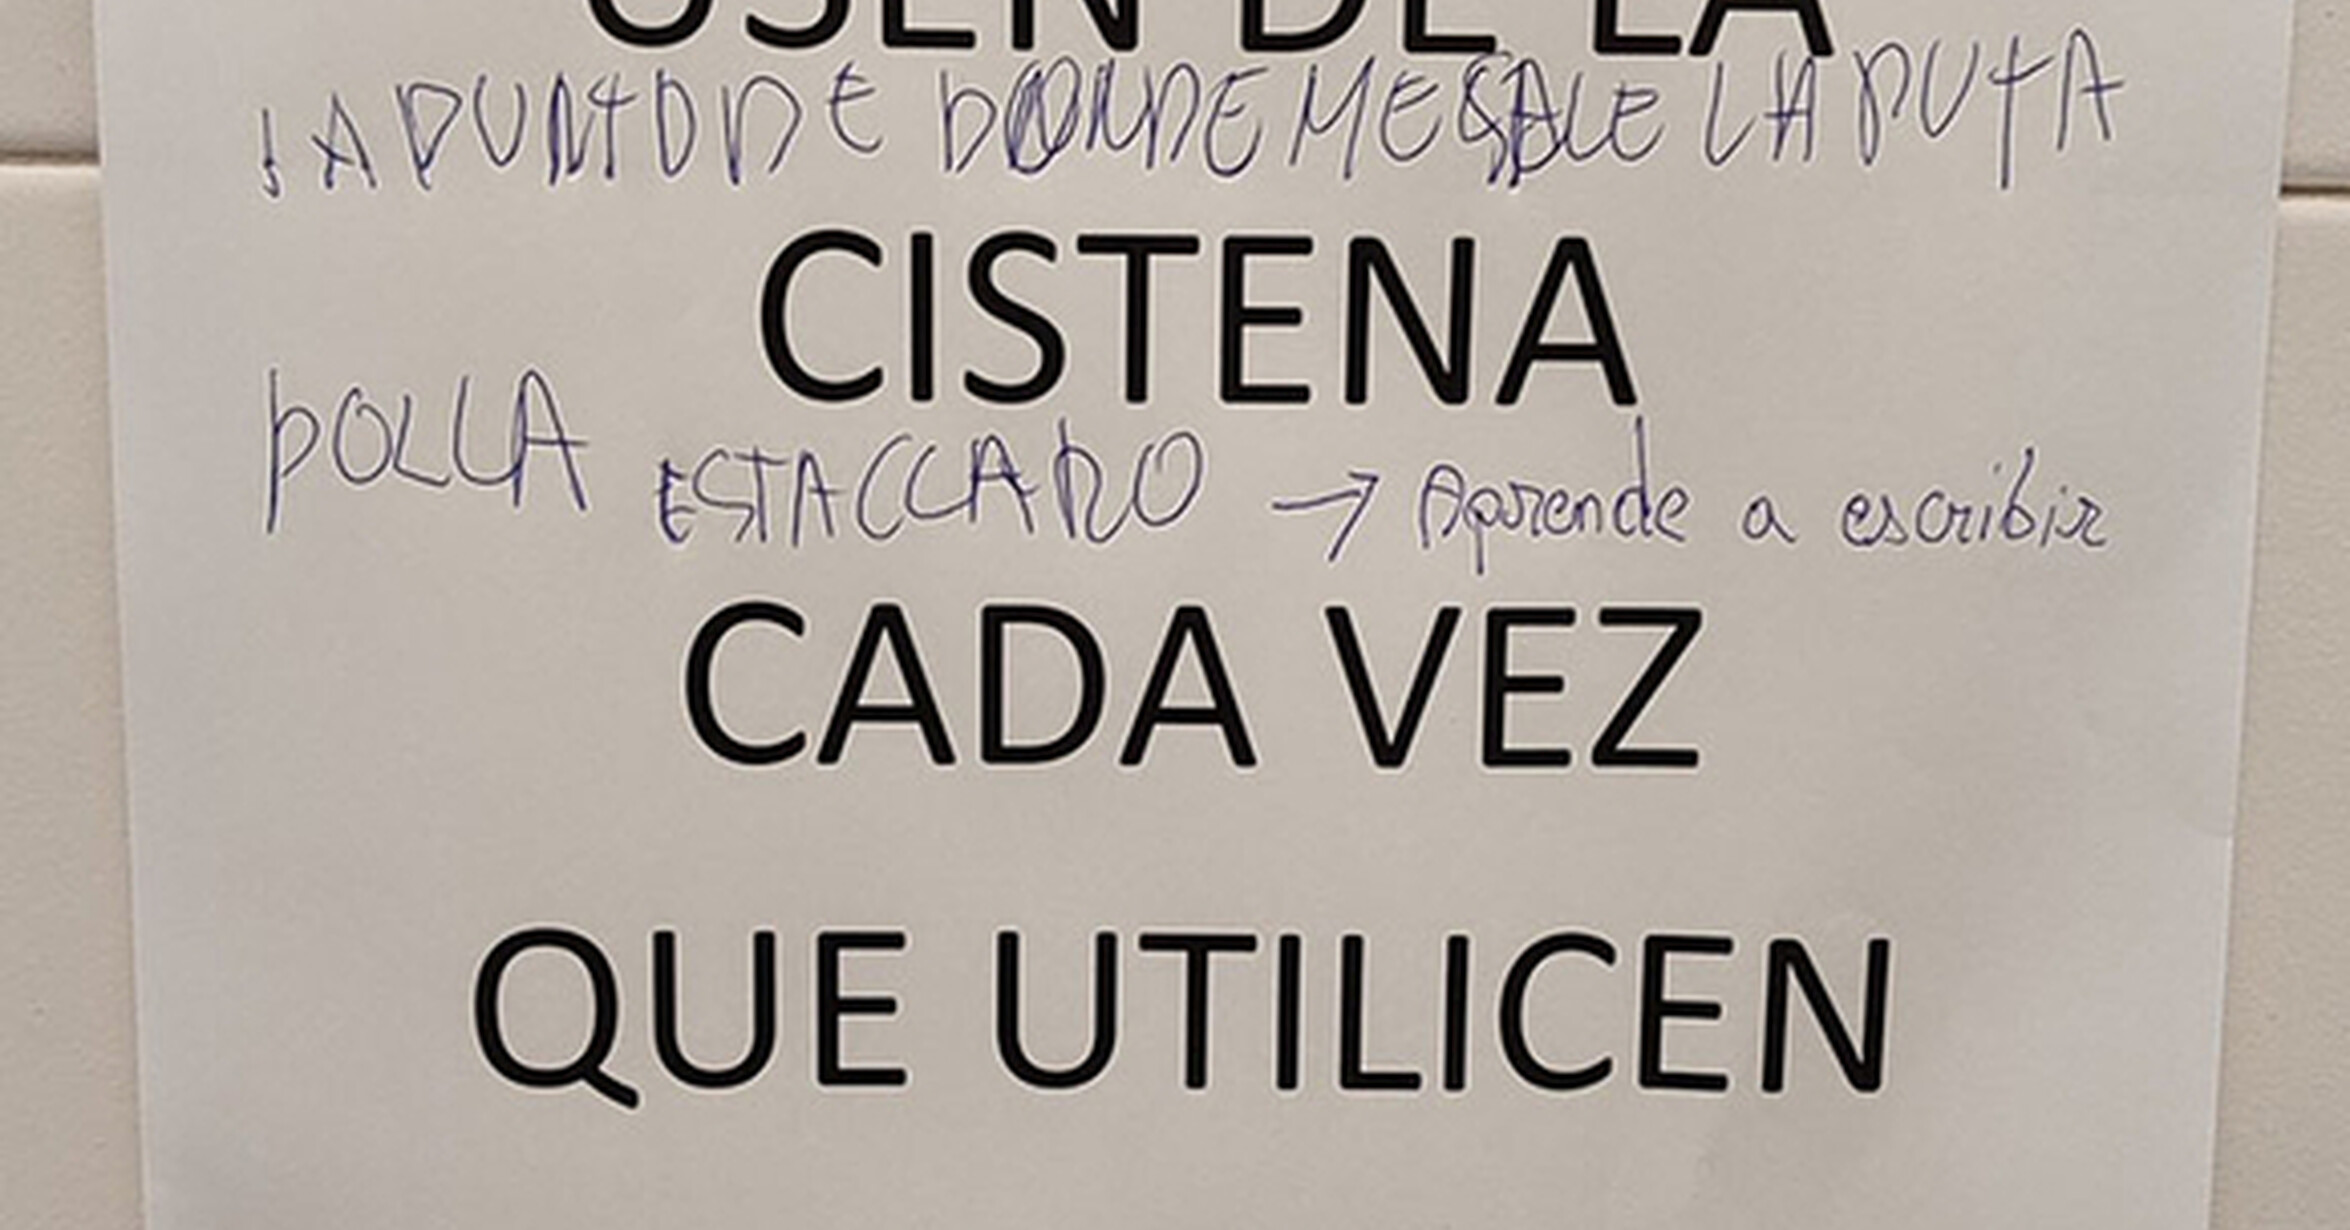 USEN DE LA
! APUNTO DE DONDE ME SALE LA PUTA
CISTENA
POLLA ESTACCARO → Aprende a escribir
CADA VEZ
QUE UTILICEN